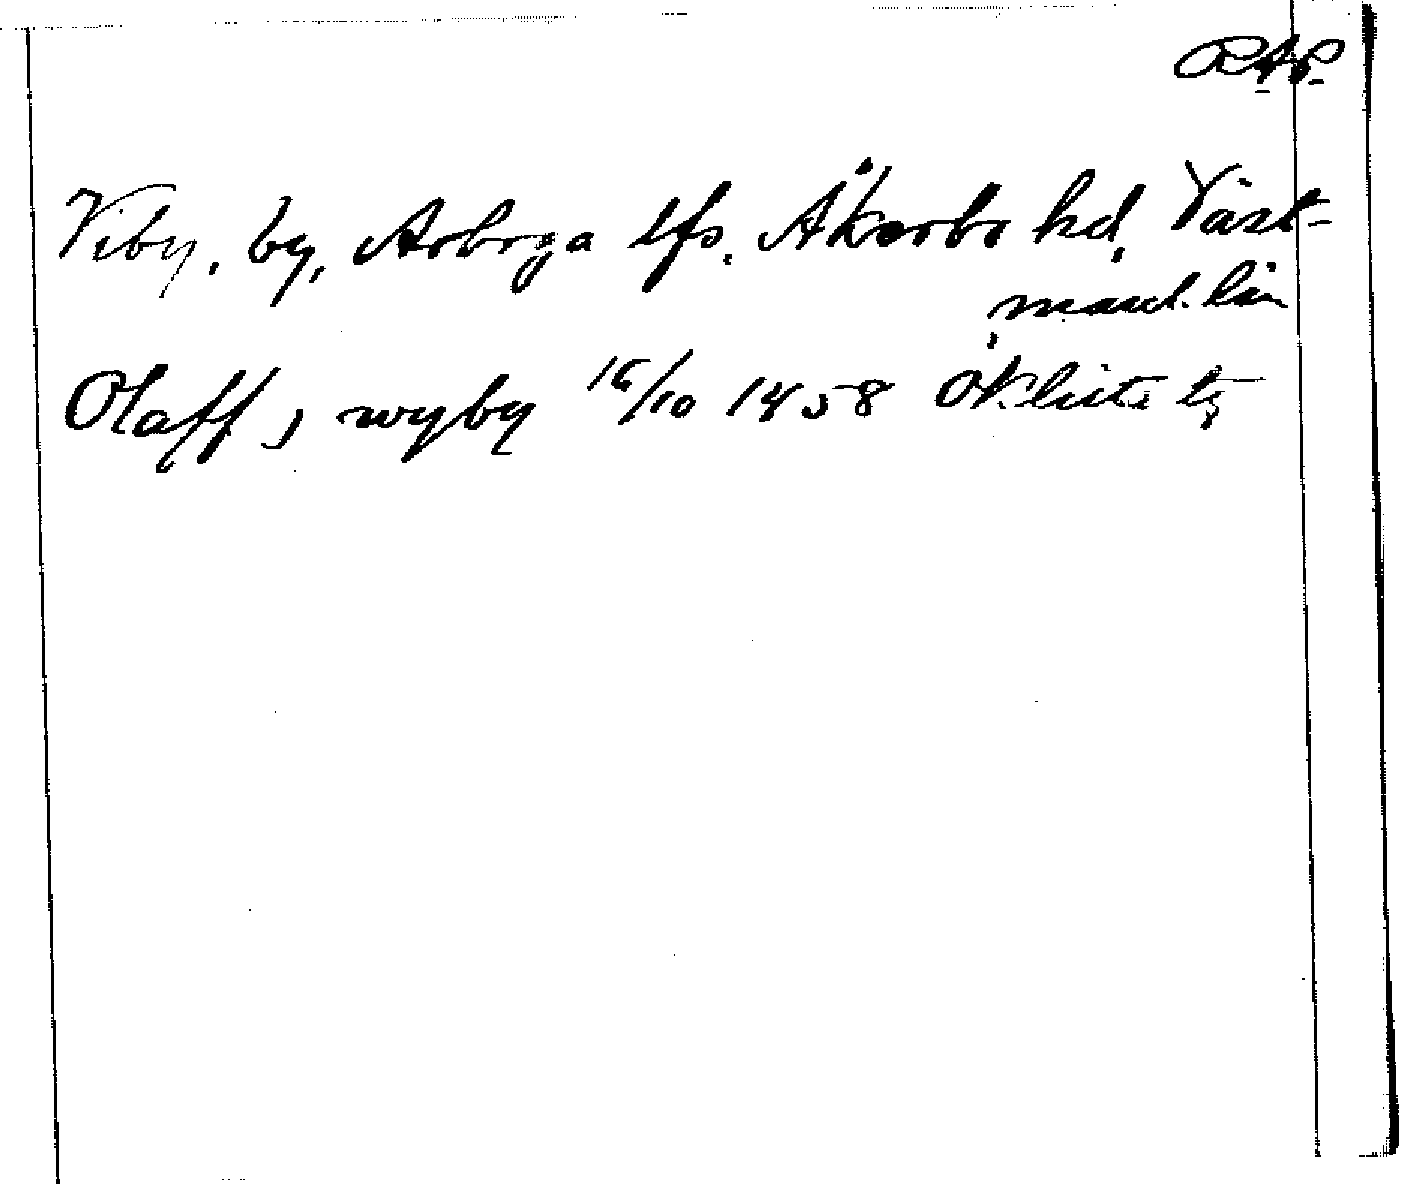 R.A.P.
Viby, by, Arboga lfs. Åkerbo hd, Väst-
manl. län
Olaff j wyby 15/10 1458